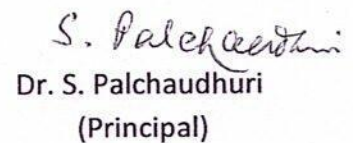 S. Palchaudhuri
Dr. S. Palchaudhuri
(Principal)